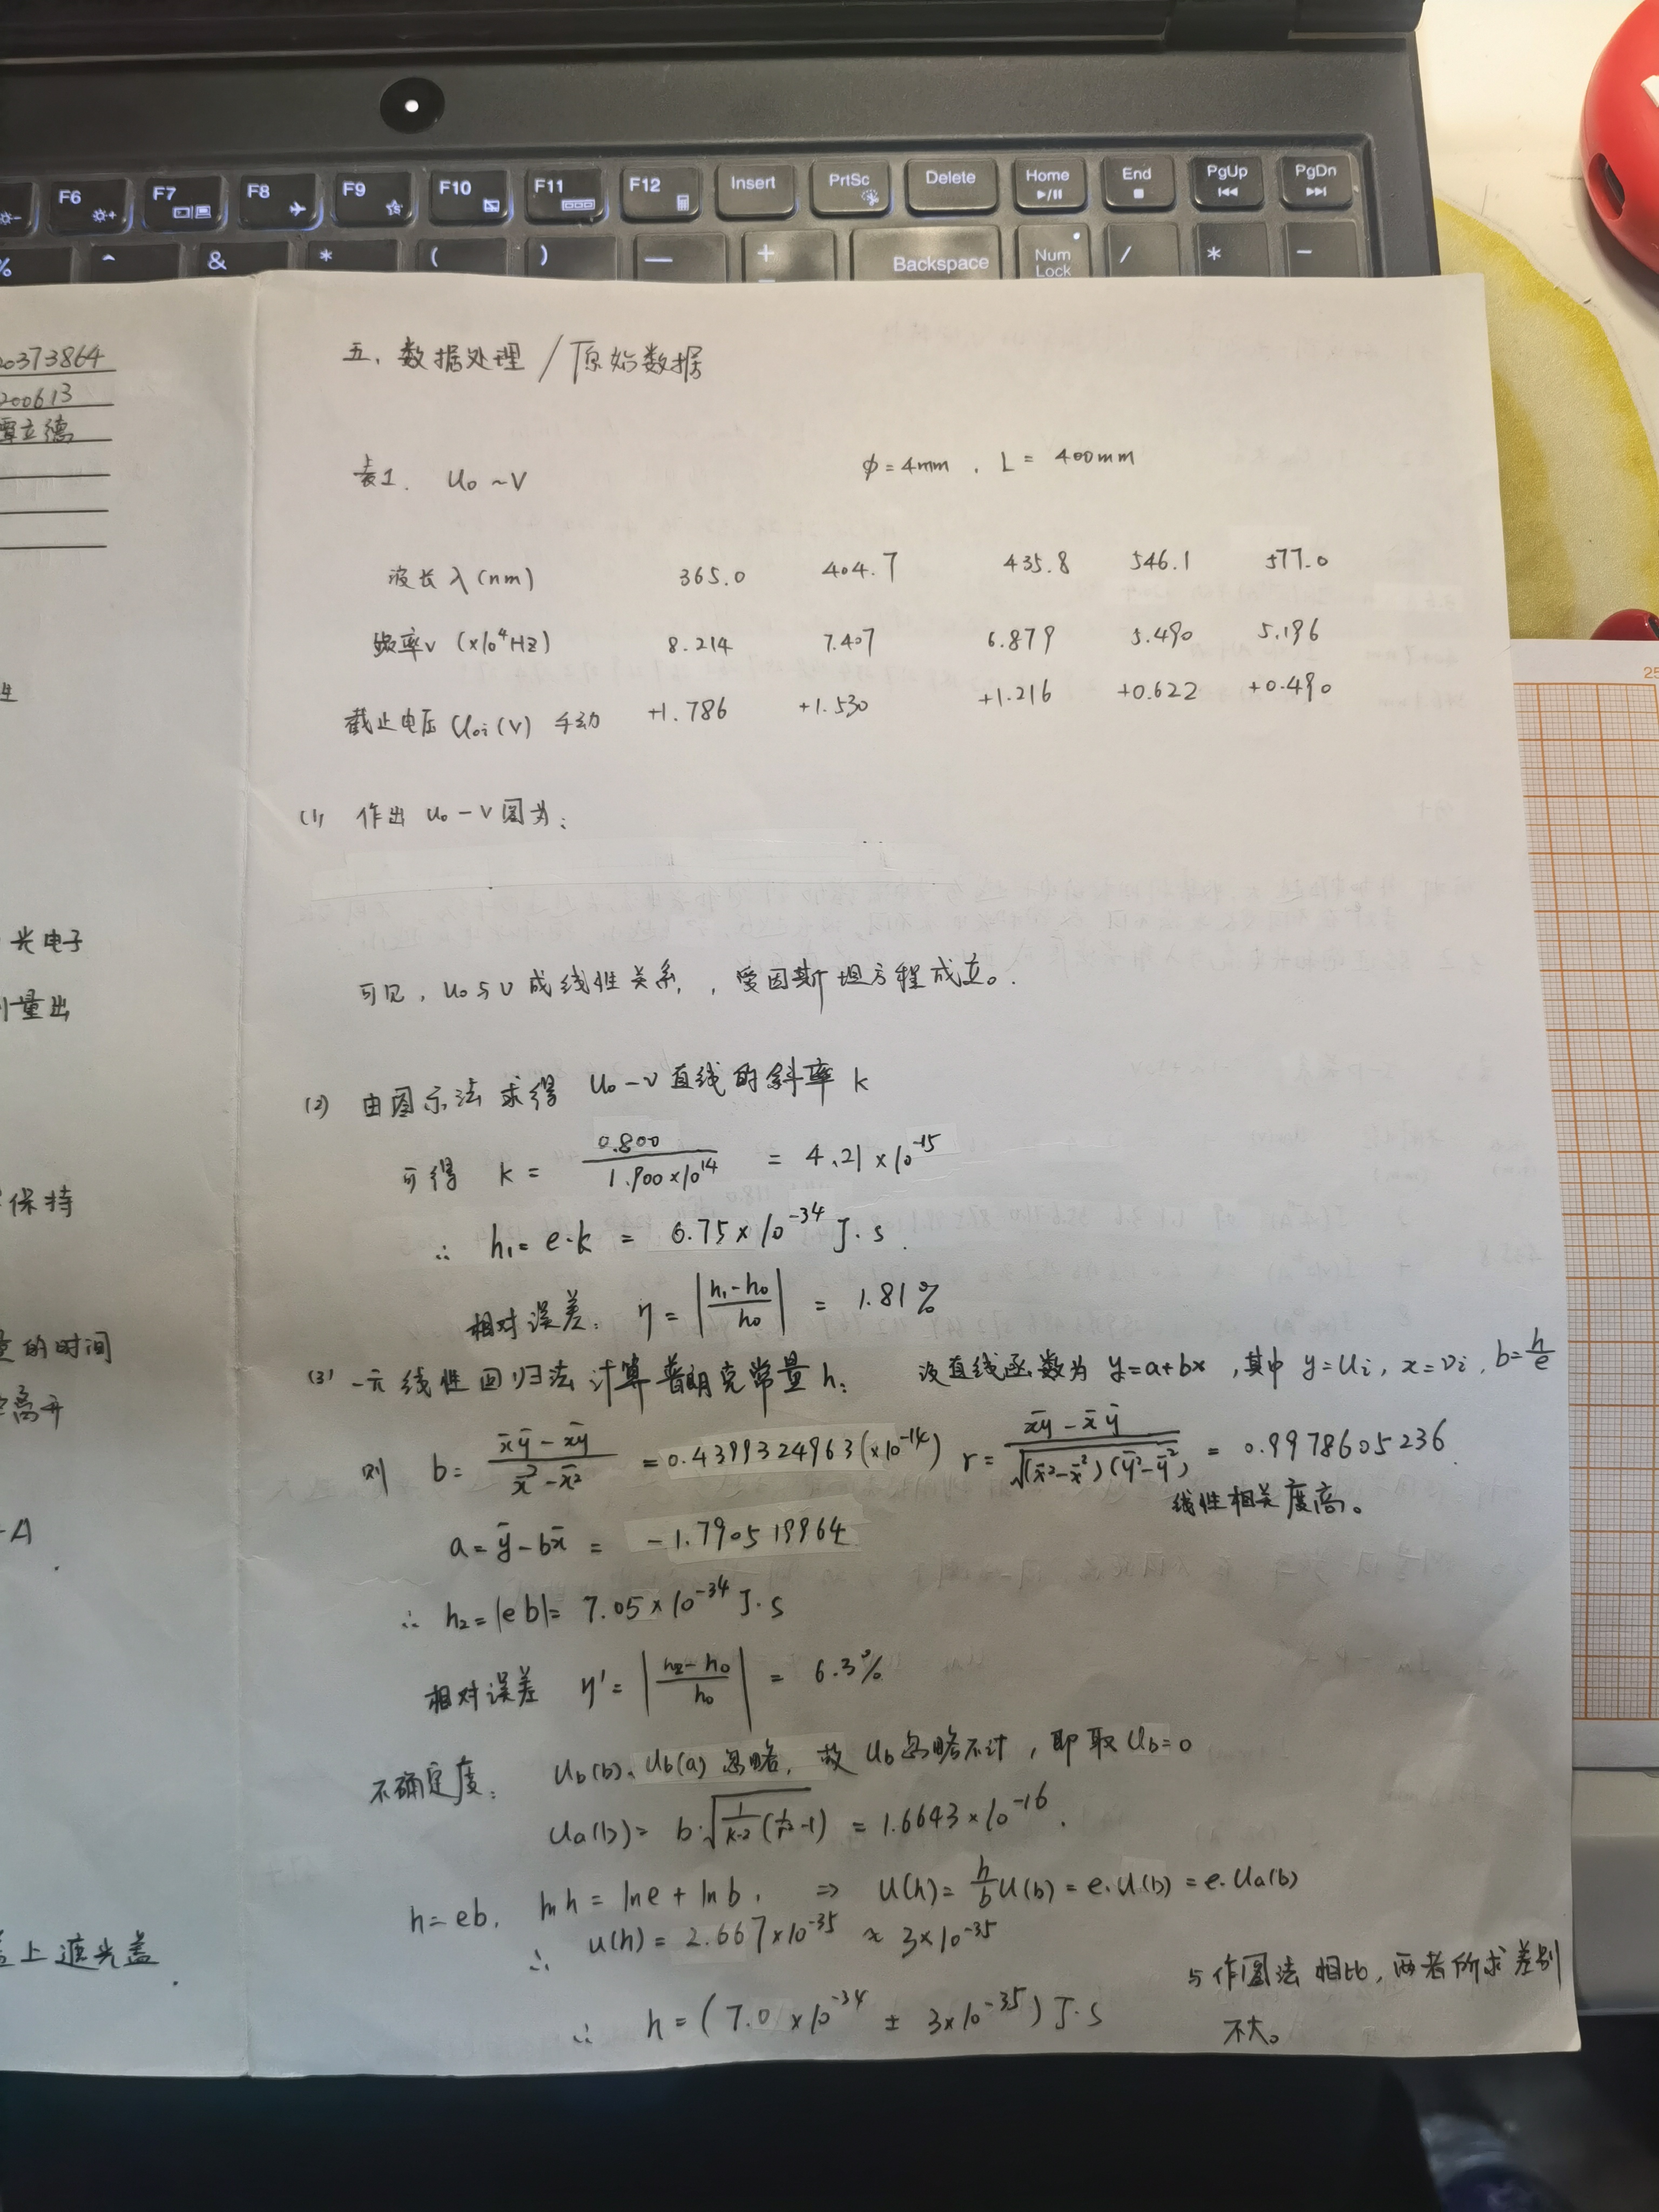 F6 F7 F8 F9 F10 F11 F12 Insert PrtSc Delete Home End PgUp PgDn
% ^ & * ( ) — + Backspace Num Lock / * −
20373864
200613
覃立德
光电子
量出
保持
的时间
离开
A
盖上遮光盖.
25
五、数据处理/原始数据
表1. U₀~ν φ=4mm, L= 400mm
波长λ(nm) 365.0 404.7 435.8 546.1 577.0
频率ν (×10⁴Hz) 8.214 7.407 6.879 5.490 5.196
截止电压U₀ᵢ(V) 手动 +1.786 +1.530 +1.216 +0.622 +0.490
(1) 作出 U₀-ν图为:
可见, U₀与ν成线性关系, 爱因斯坦方程成立。
(2) 由图示法求得 U₀-ν直线的斜率k
可得 k = 0.800/1.900×10¹⁴ = 4.21×10⁻¹⁵
∴ h₁=e·k = 6.75×10⁻³⁴ J·s.
相对误差: η=|(h₁-h₀)/h₀| = 1.81%
(3) 一元线性回归法计算普朗克常量h: 设直线函数为 y=a+bx, 其中 y=Uᵢ, x=νᵢ, b=h/e
则 b= (x̄ȳ-x̄ȳ)/(x̄²-x̄²) =0.4399324963(×10⁻¹⁴) r= (x̄ȳ-x̄ȳ)/√((x̄²-x̄²)(ȳ²-ȳ²)) = 0.9978605236.
线性相关度高。
a=ȳ-bx̄ = -1.790519964
∴ h₂=|eb|= 7.05×10⁻³⁴ J·s
相对误差 η'=|(h₂-h₀)/h₀| = 6.3%
不确定度: Ub(b)、Ub(a)忽略, 故Ub忽略不计, 即取Ub=0
Ua(b)= b·√(1/(k-2)(1/r²-1)) = 1.6643×10⁻¹⁶.
h=eb, ln h = ln e + ln b, ⇒ U(h)= h/b U(b) = e·U(b) = e·Ua(b)
∴ u(h) = 2.667×10⁻³⁵ ≈ 3×10⁻³⁵
∴ h=(7.0×10⁻³⁴ ± 3×10⁻³⁵) J·s
与作图法相比, 两者所求差别
不大。